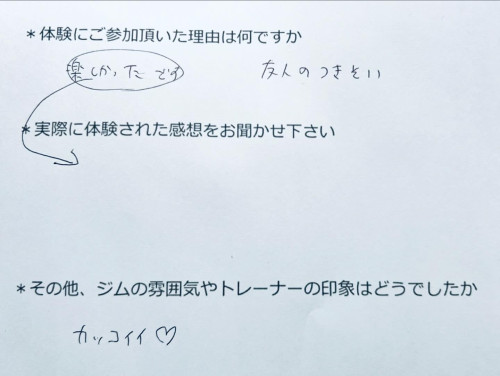 *体験にご参加頂いた理由は何ですか
楽しかったです 友人のつきそい
*実際に体験された感想をお聞かせ下さい
*その他、ジムの雰囲気やトレーナーの印象はどうでしたか
カッコイイ♡